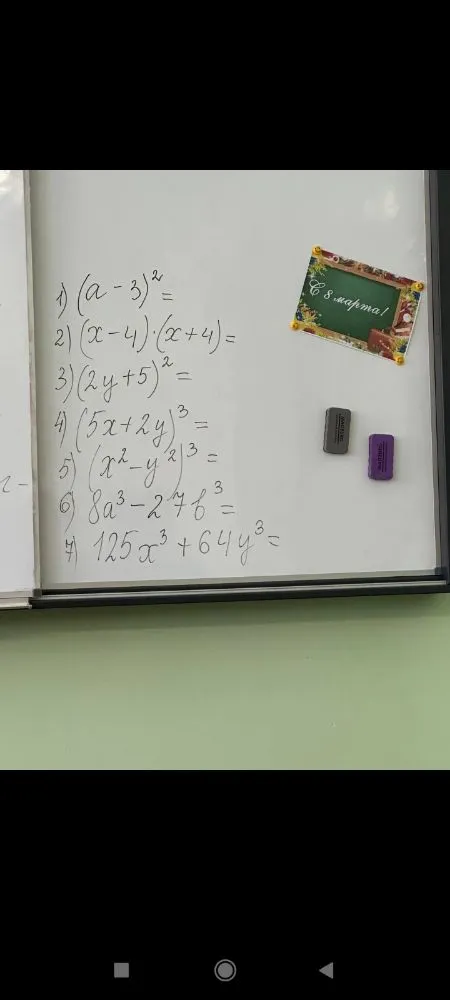 1) (a - 3)² =
2) (x - 4)·(x + 4) =
3) (2y + 5)² =
4) (5x + 2y)³ =
5) (x² - y²)³ =
6) 8a³ - 27b³ =
7) 125x³ + 64y³ =
С 8 марта!